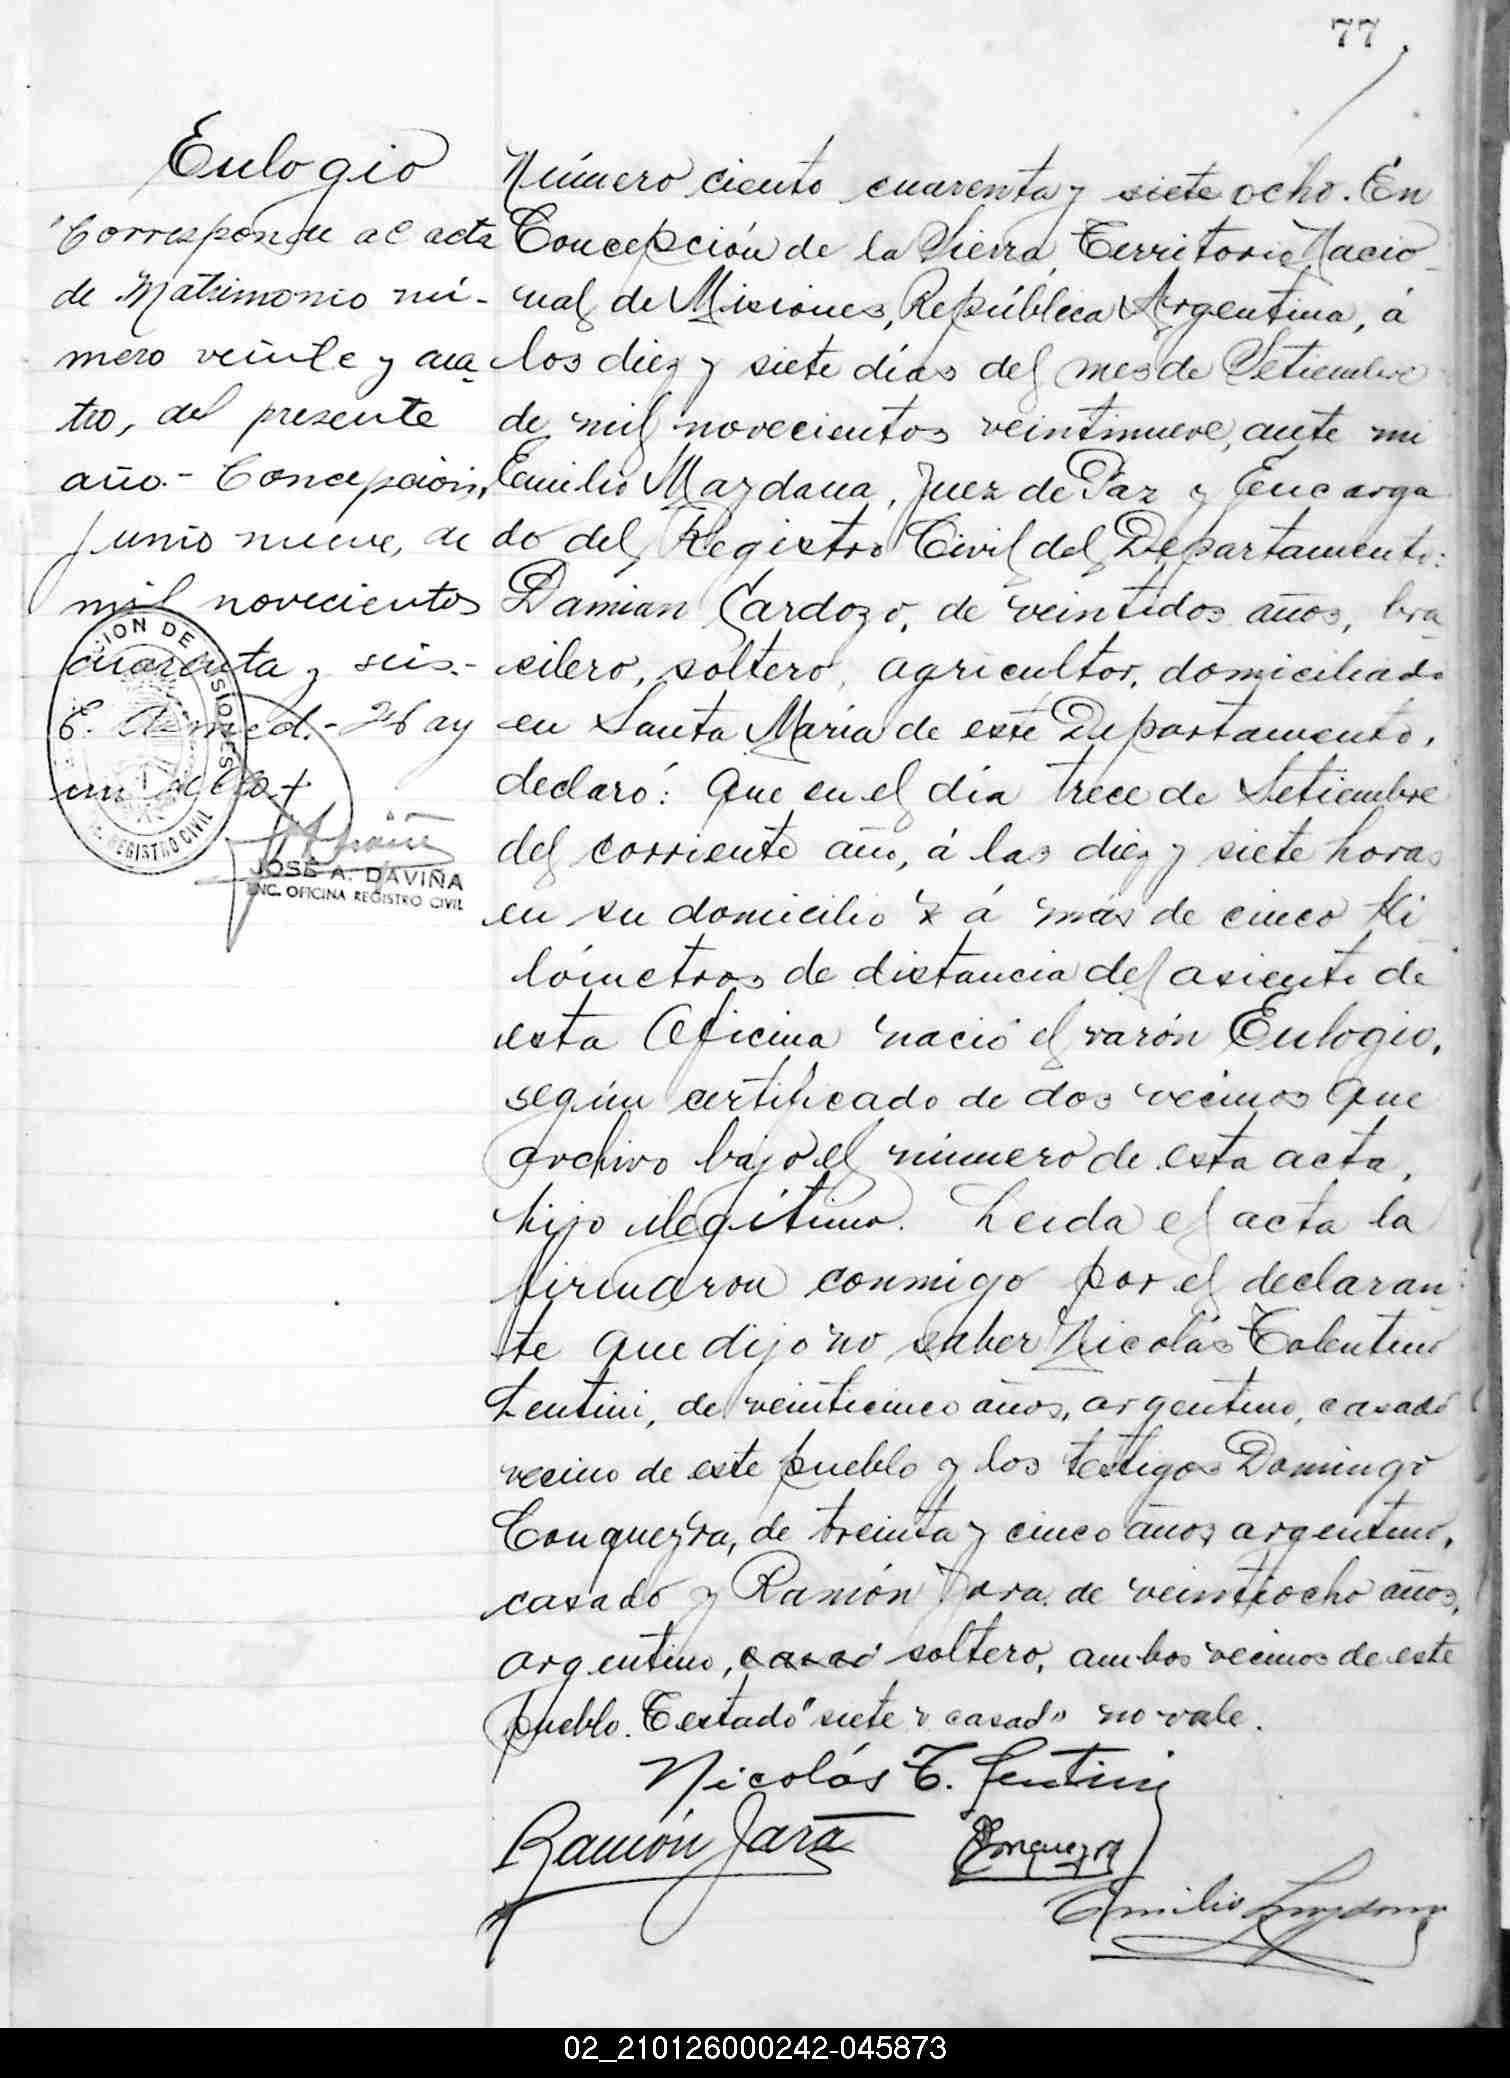 77
Eulogio
Corresponde al acta
de Matrimonio nú-
mero veinte y cua-
tro, del presente
año.- Concepción,
junio nueve, de
mil novecientos
cuarenta y seis.-
E. Hay
un sello
JOSÉ A. DAVIÑA
ENC. OFICINA REGISTRO CIVIL
REGISTRO CIVIL
Número ciento cuarenta y siete ocho. En
Concepción de la Sierra, Territorio Nacio-
nal de Misiones, República Argentina, á
los diez y siete días del mes de Setiembre
de mil novecientos veintinueve, ante mi
Emilio Mazdana, Juez de Paz y Encarga
do del Registro Civil del Departamento:
Damian Cardozo, de veintidos años, bra-
silero, soltero, agricultor, domiciliado
en Santa María de este Departamento,
declaró: Que en el día trece de Setiembre
del corriente año, á las diez y siete horas
en su domicilio á más de cinco Ki-
lómetros de distancia del asiento de
esta Oficina nació el varón Eulogio,
según certificado de dos vecinos que
archivo bajo el número de esta acta,
hijo ilegítimo. Leida el acta la
firmaron conmigo por el declaran-
te que dijo no saber Nicolás Tolentino
Lentini, de veinticinco años, argentino, casado
vecino de este pueblo y los testigos Domingo
Conqueyra, de treinta y cinco años argentino,
casado y Ramón Jara de veintiocho años,
argentino, casado soltero, ambos vecinos de este
pueblo. Testado "siete" casado no vale.
Nicolás T. Lentini
Ramón Jara
Conqueyra
Emilio Mazdana
02_210126000242-045873